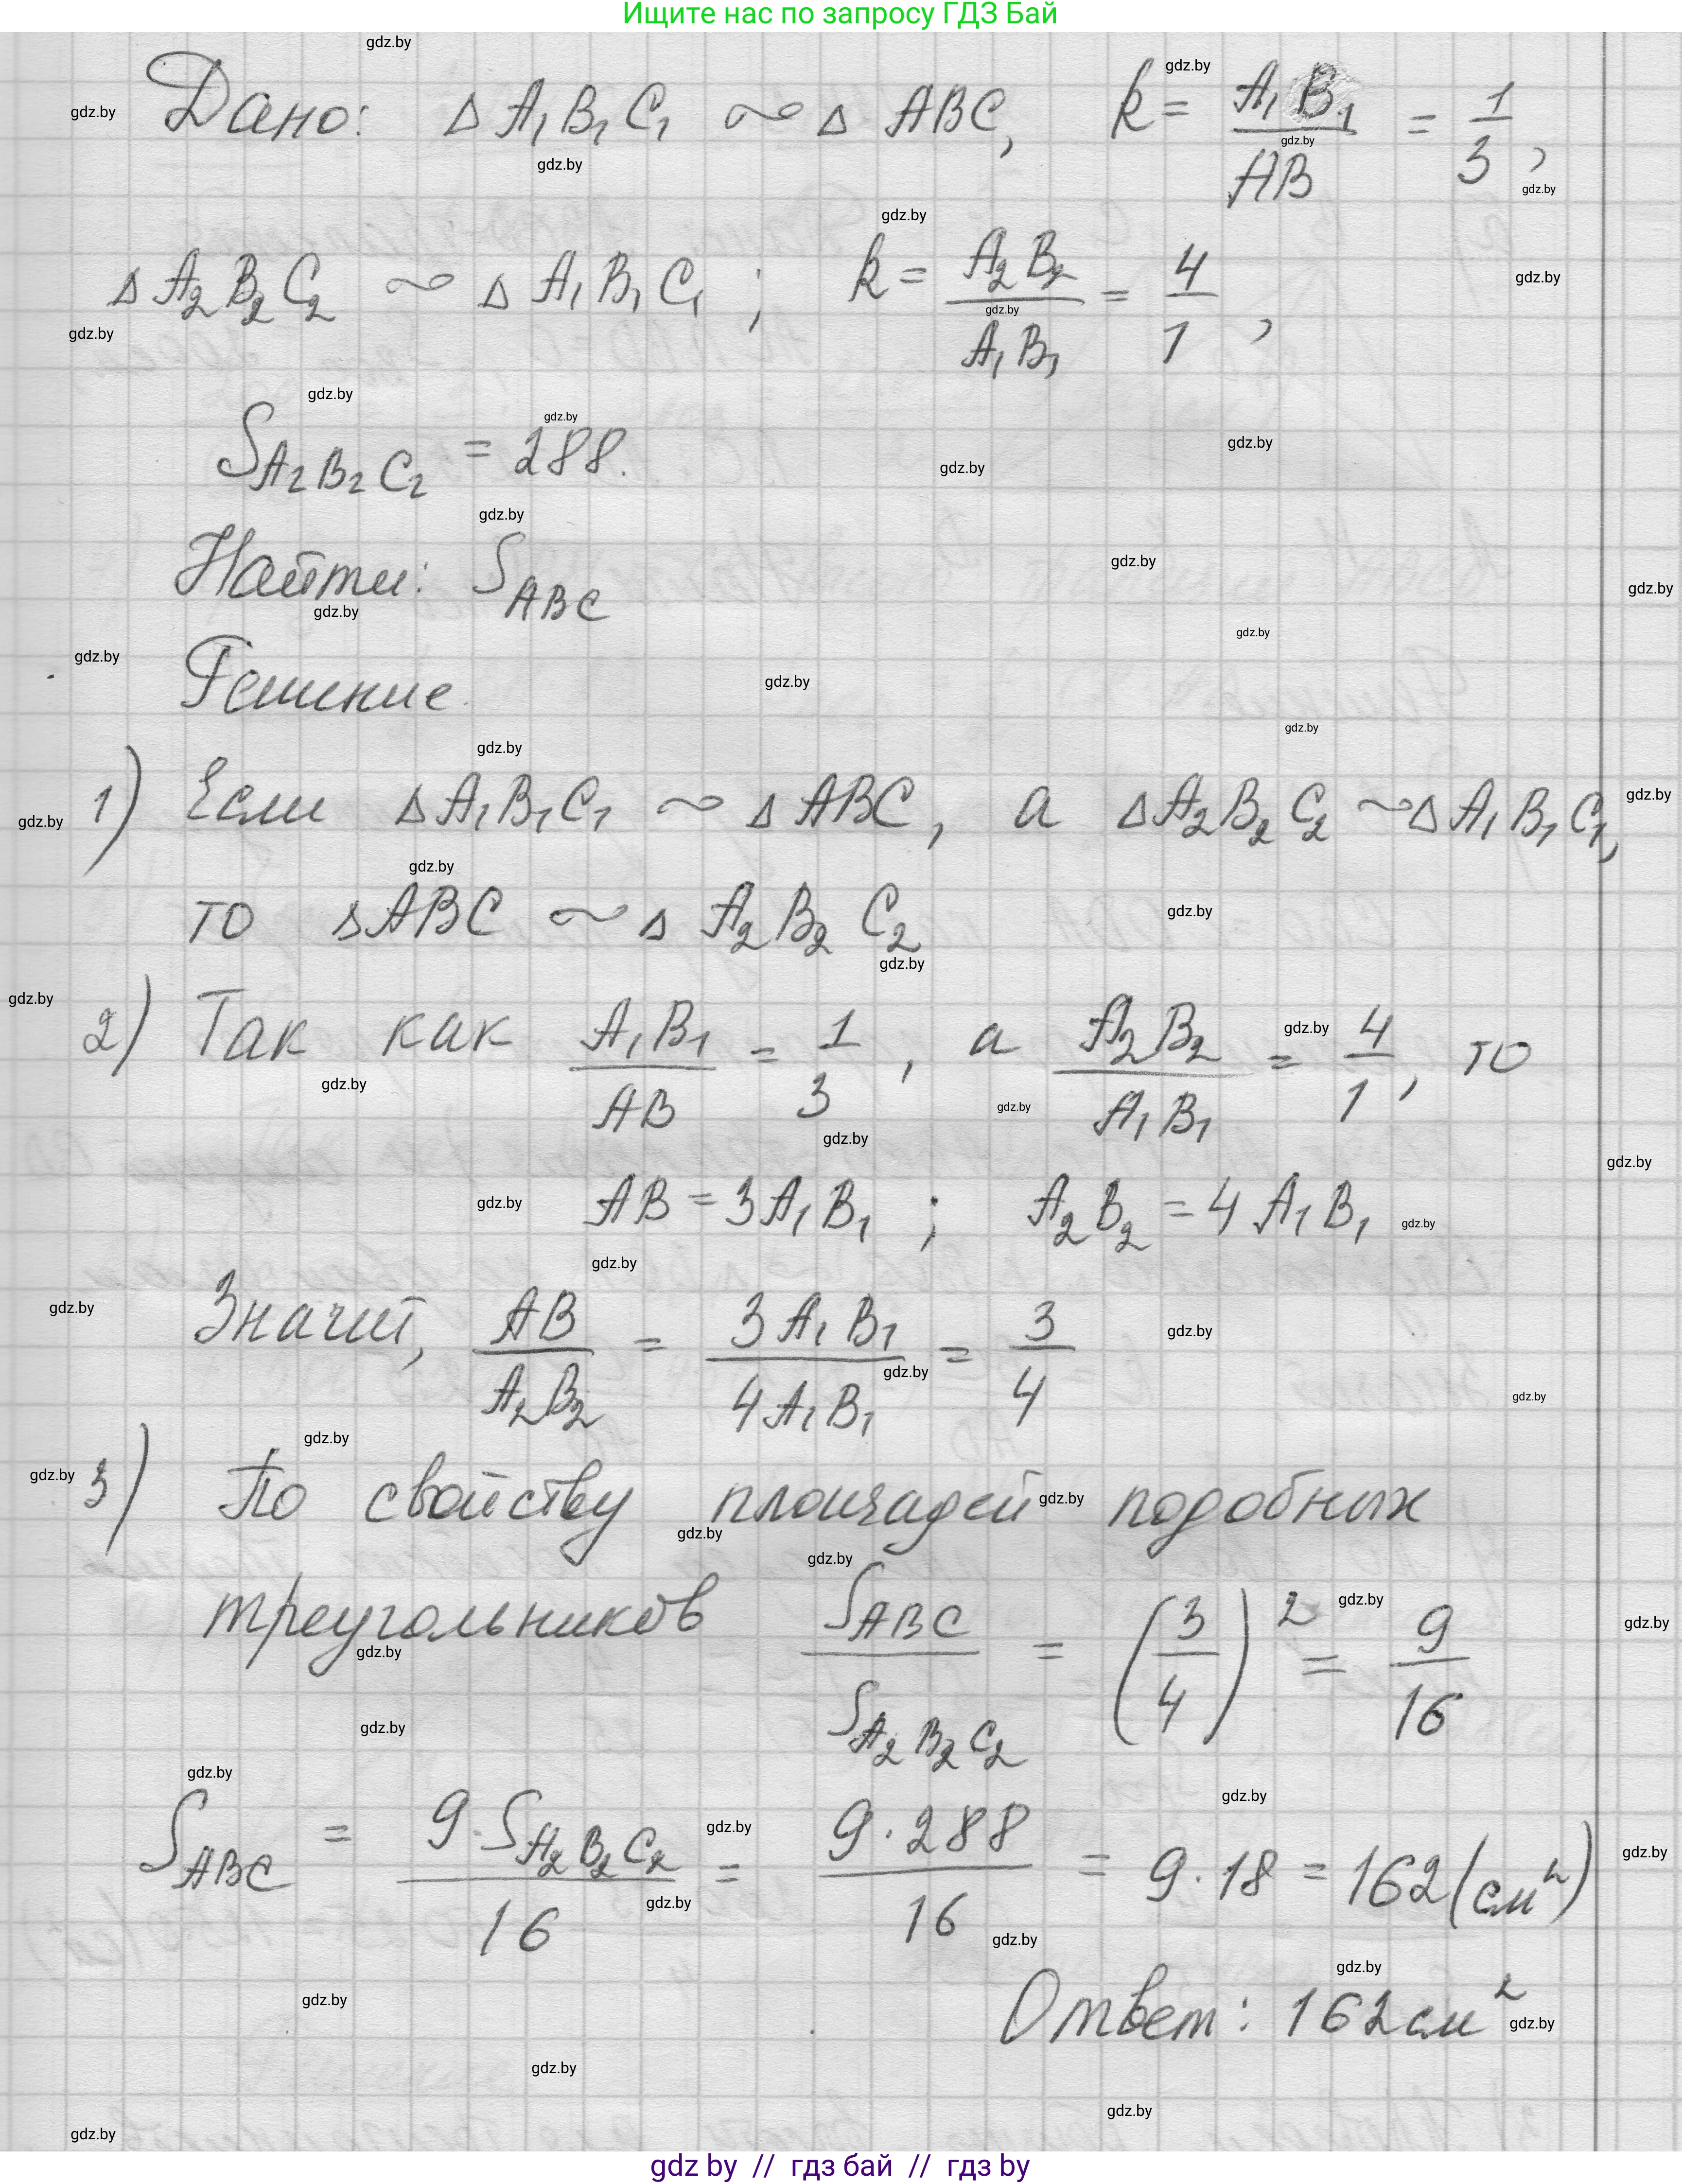 Ищите нас по запросу ГДЗ Бай
Дано: Δ A₁B₁C₁ ∼ Δ ABC, k = A₁B₁/AB = 1/3,
Δ A₂B₂C₂ ∼ Δ A₁B₁C₁; k = A₂B₂/A₁B₁ = 4/1,
S A₂B₂C₂ = 288.
Найти: S ABC
Решение.
1) Если Δ A₁B₁C₁ ∼ Δ ABC, а Δ A₂B₂C₂ ∼ Δ A₁B₁C₁,
то Δ ABC ∼ Δ A₂B₂C₂
2) Так как A₁B₁/AB = 1/3, а A₂B₂/A₁B₁ = 4/1, то
AB = 3A₁B₁; A₂B₂ = 4A₁B₁
Значит, AB/A₂B₂ = 3A₁B₁/4A₁B₁ = 3/4
3) По свойству площадей подобных
треугольников S ABC/S A₂B₂C₂ = (3/4)² = 9/16
S ABC = 9·S A₂B₂C₂/16 = 9·288/16 = 9·18 = 162 (см²)
Ответ: 162 см²
gdz by // гдз бай // гдз by